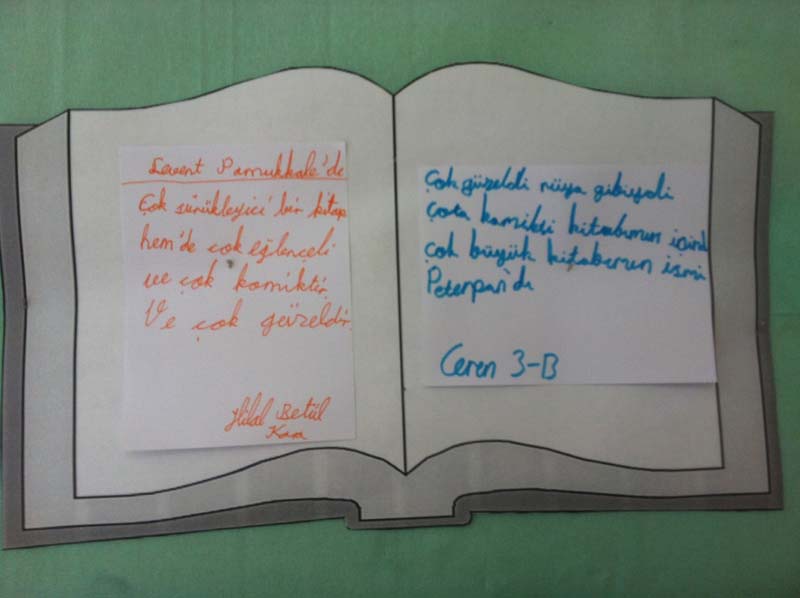 Levent Pamukkale'de
Çok sürükleyici bir kitap
hem'de çok eğlençeli
ve çok komiktir
Ve çok güzeldir.
Hilal Betül
Kaa
Çok güzeldi rüya gibiydi
çota komikti kitabımın içinde
çok büyük kitabımın ismi
Peterpan'dı
Ceren 3-B